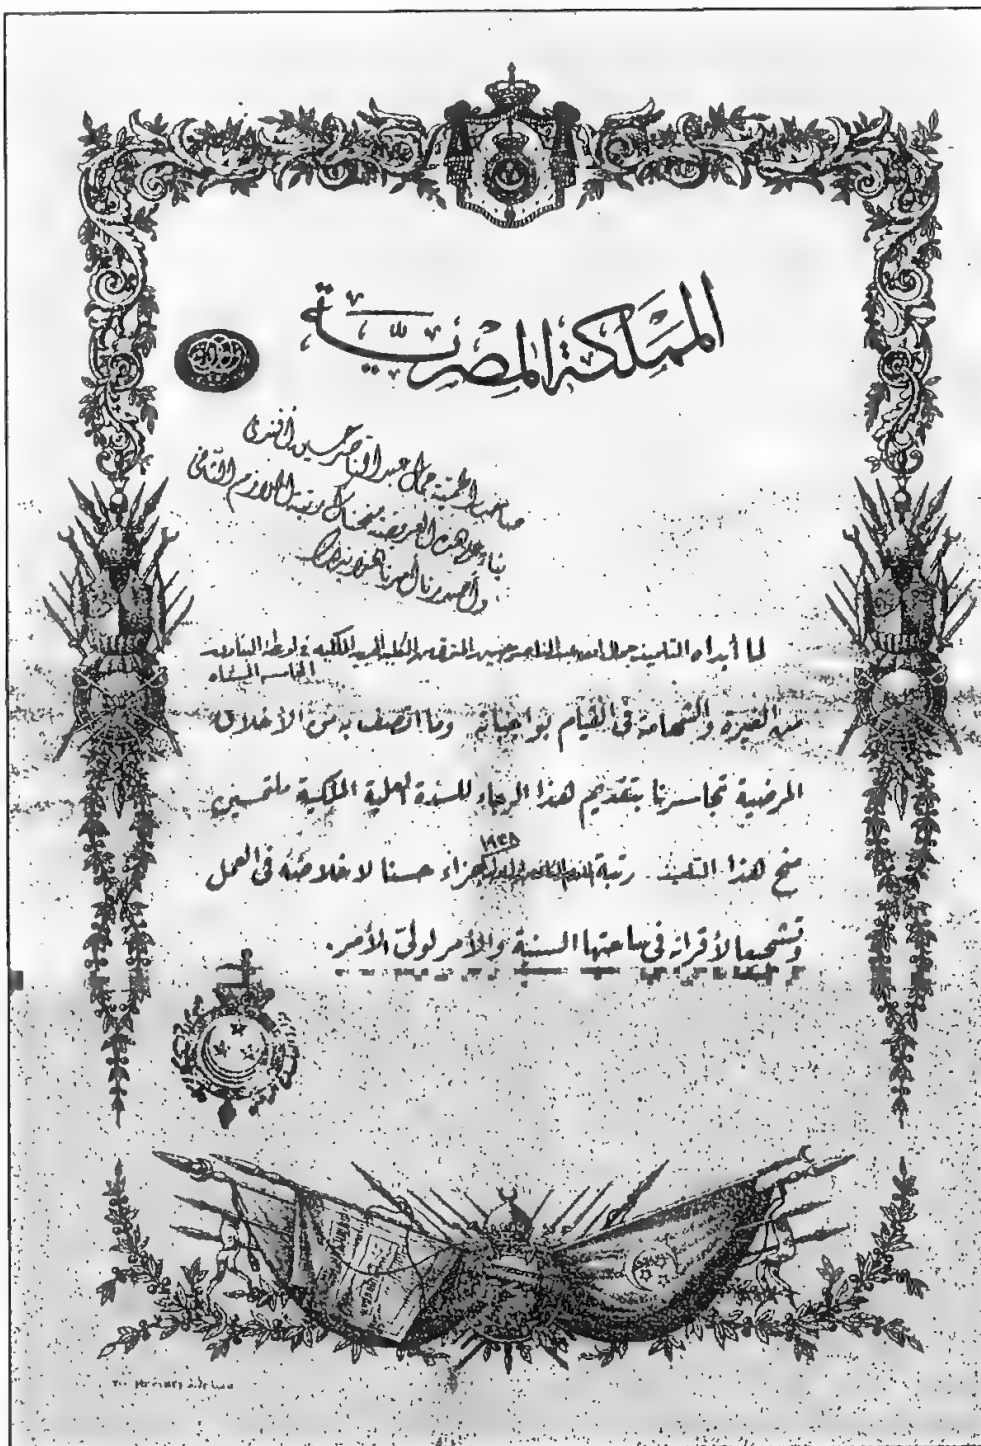 المملكة المصرية
صاحب الحمية جمال عبد الناصر حسين أفندي
بناء على هذه العريضة منحناك رتبة الملازم الثاني
وأصدرنا أمرنا هذا بذلك
لما أبداه التلميذ جمال عبد الناصر حسين من الكلية الحربية الملكية في أورطة البنادق
الخامسة المشاه
من الغيرة والشهامة في القيام بواجباته وما اتصف به من الأخلاق
المرضية تجاسرنا بتقديم هذا الرجاء للسدة العلية الملكية ملتمسين
١٩٣٨
منح هذا التلميذ رتبة الملازم الثاني جزاء حسنا لاخلاصه في العمل
وتشجيعا لأقرانه في ساحتها السنية والأمر لولي الأمر.